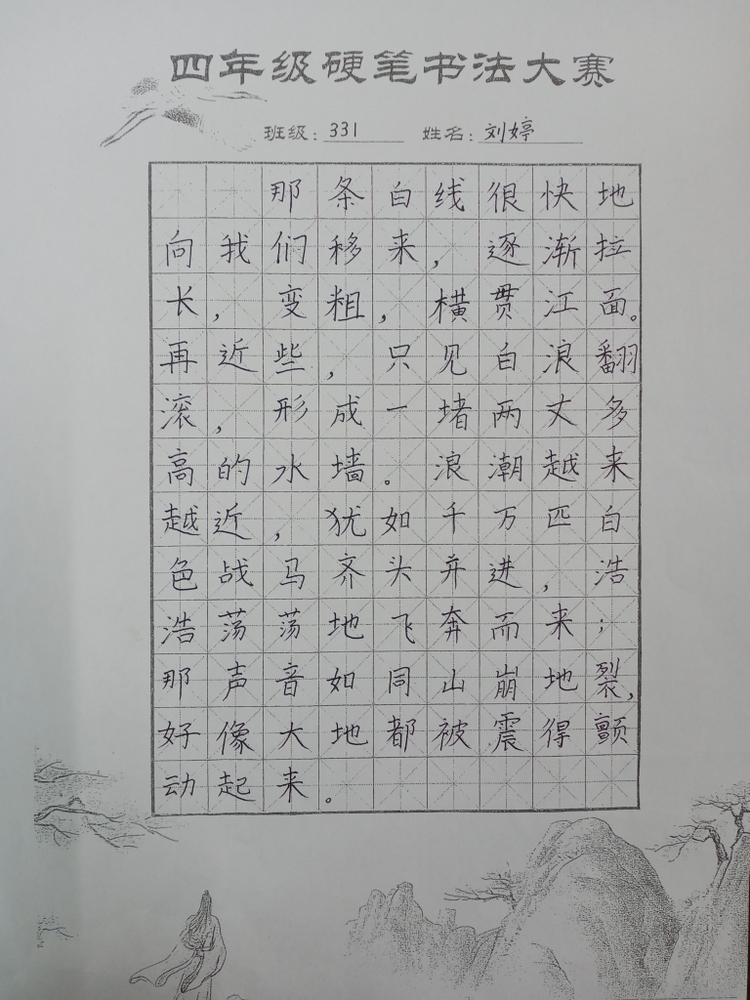 四年级硬笔书法大赛
班级：331 姓名：刘婷
那条白线很快地
向我们移来，逐渐拉
长，变粗，横贯江面。
再近些，只见白浪翻
滚，形成一堵两丈多
高的水墙。浪潮越来
越近，犹如千万匹白
色战马齐头并进，浩
浩荡荡地飞奔而来；
那声音如同山崩地裂，
好像大地都被震得颤
动起来。